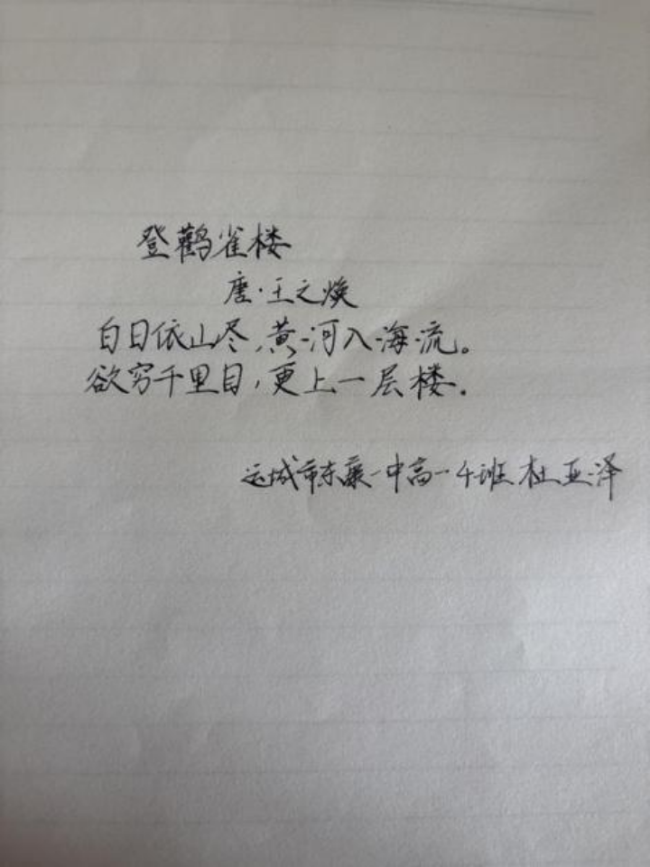 登鹳雀楼
唐·王之焕
白日依山尽,黄河入海流。
欲穷千里目,更上一层楼.
运城市东康一中高一4班 杜亚泽